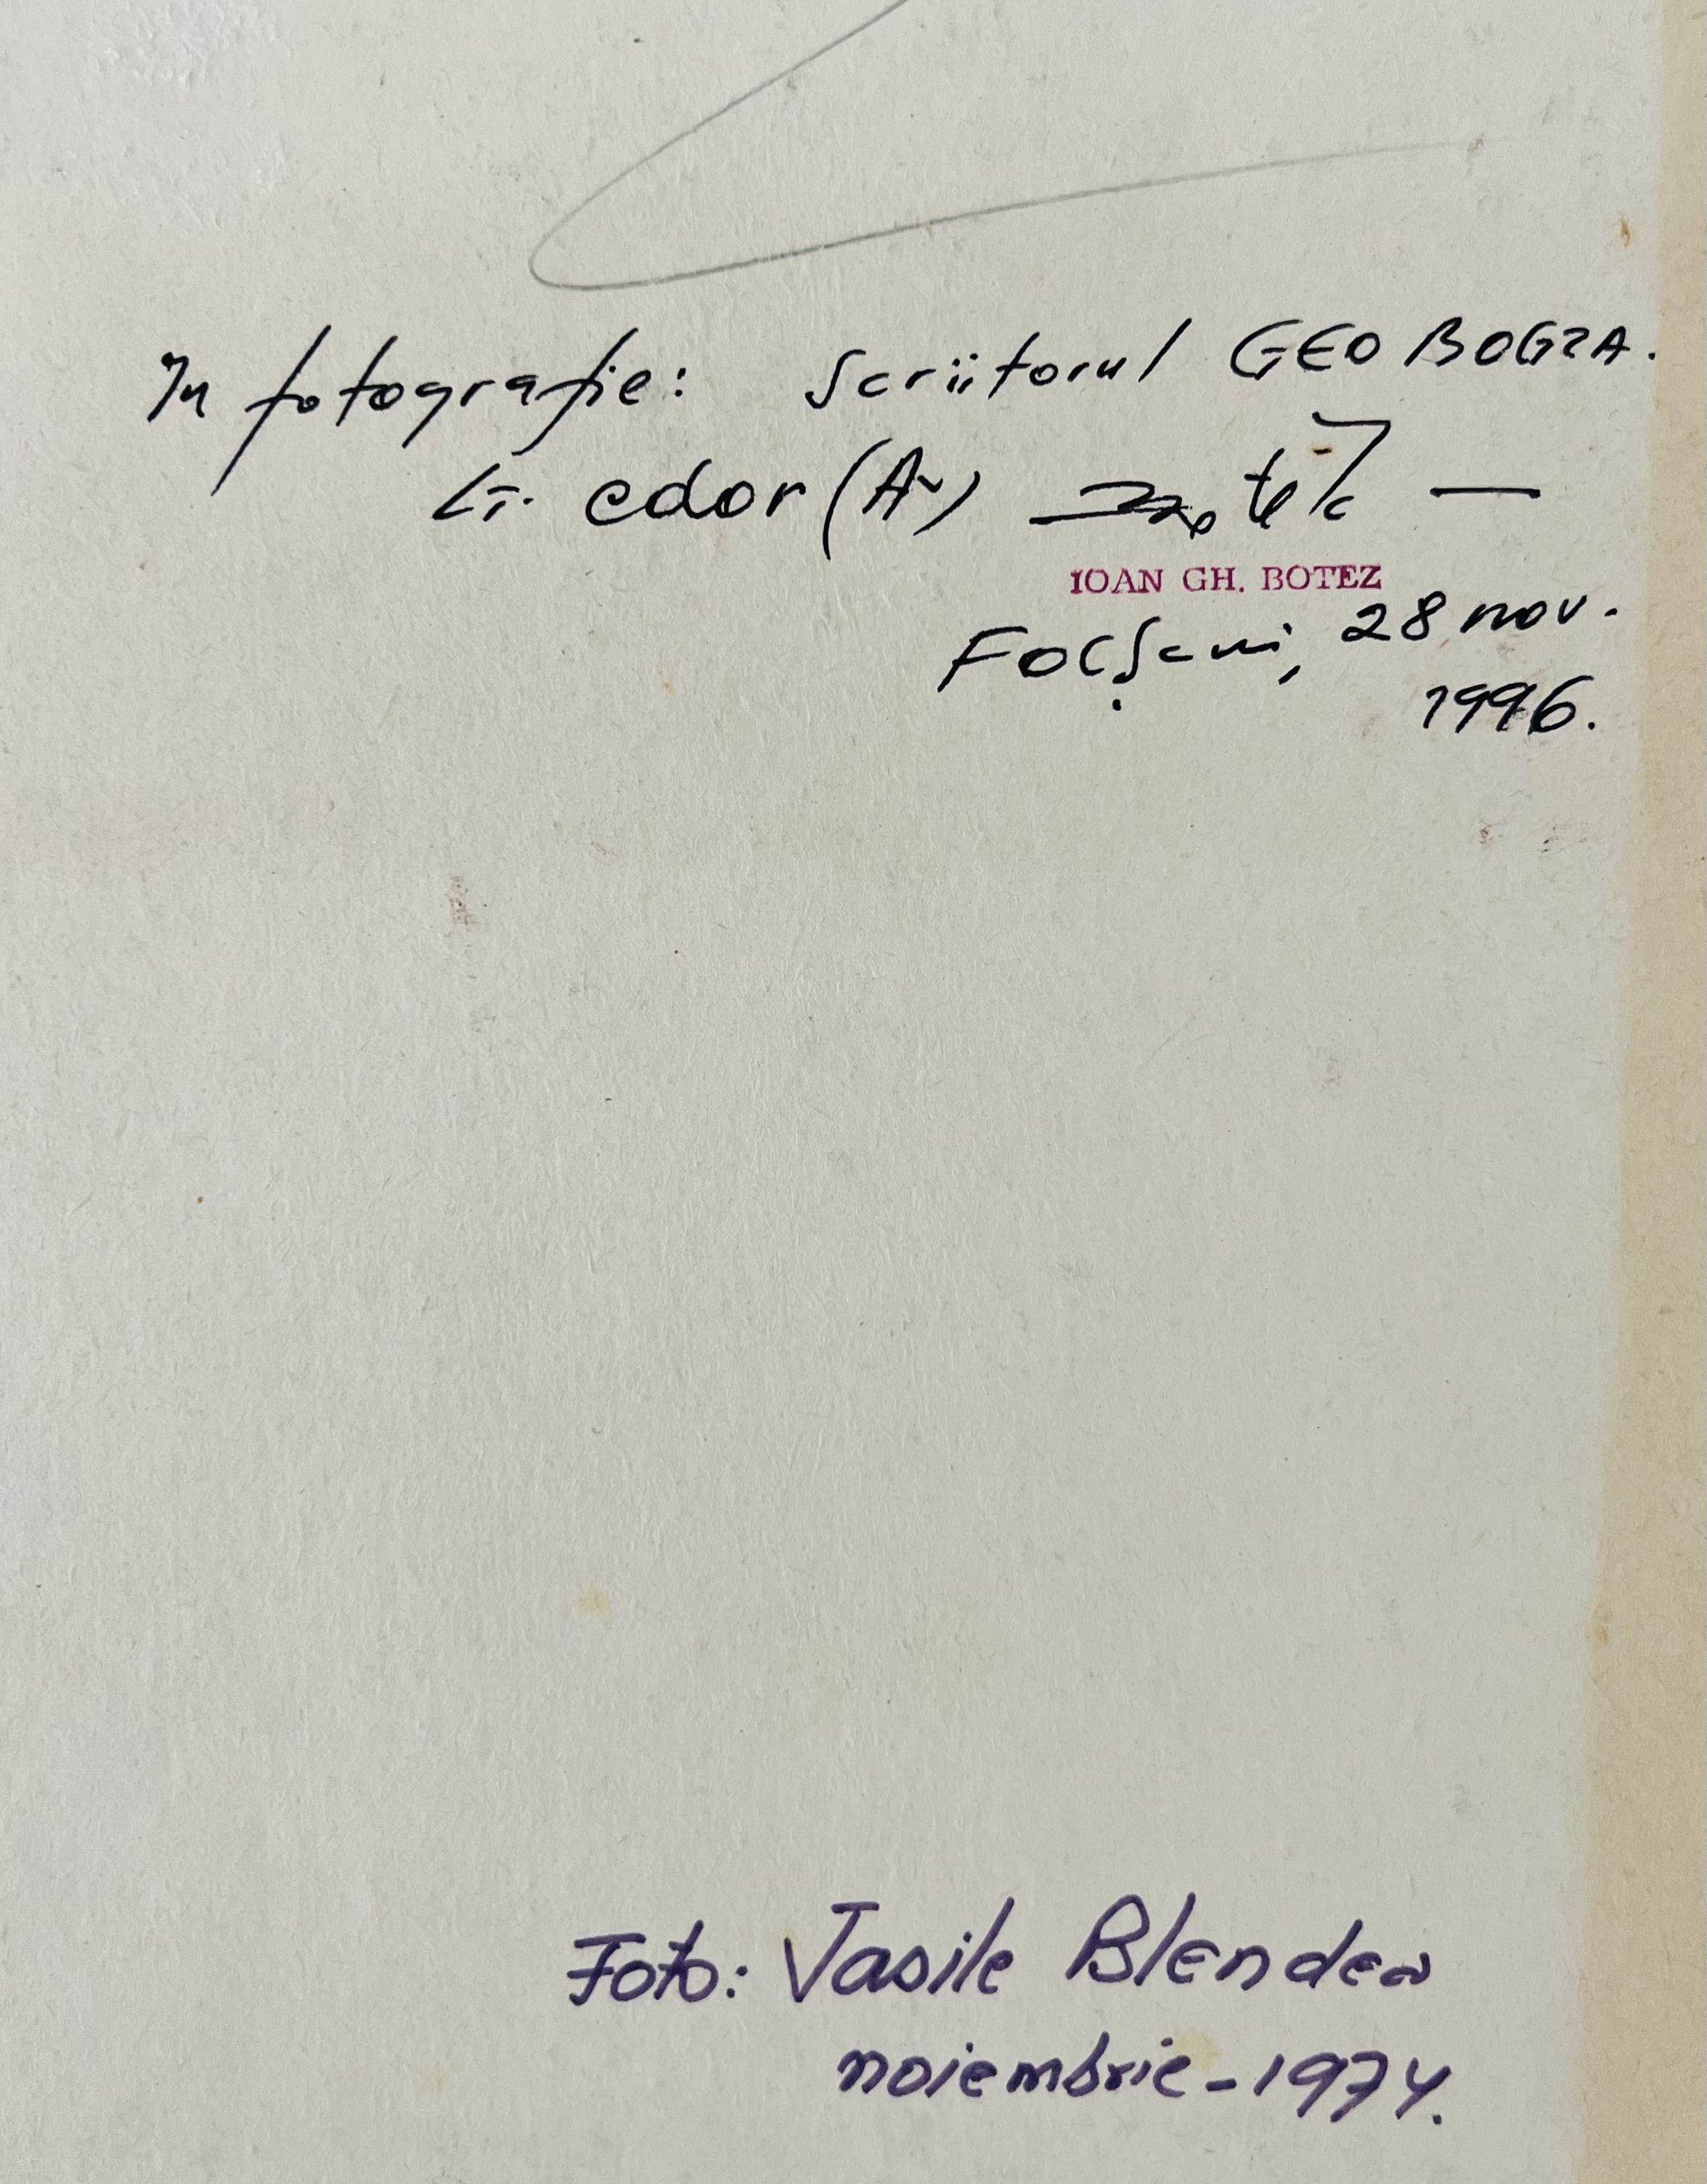 In fotografie: Scriitorul GEO BOGZA.
edor (Av)
IOAN GH. BOTEZ
Focșani, 28 nov.
1996.
Foto: Vasile Blendea
noiembrie - 1974.